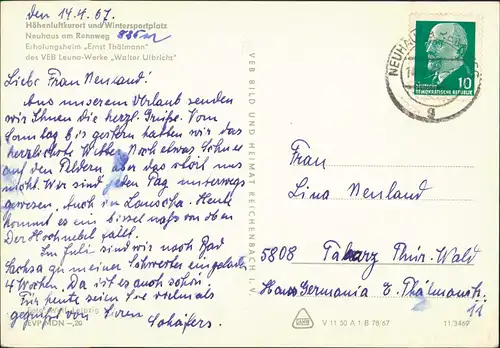 den 14.4.67.
Höhenluftkurort und Wintersportplatz
Neuhaus am Rennweg 835 m
Erholungsheim „Ernst Thälmann"
des VEB Leuna-Werke „Walter Ulbricht"
Liebe Frau Neuland!
Aus unserem Urlaub senden
wir Ihnen die herzl. Grüße. Vom
Sonntag bis gestern hatten wir das
herrlichste Wetter. Noch etwas Schnee
auf den Feldern aber das stört uns
nicht. Wir sind jeden Tag unterwegs
gewesen. Auch in Lauscha. Heute
kommt es ein bissel naß von oben
Der Hochnebel fällt.
Im Juli sind wir nach Bad
Sachsa zu meiner Schwester eingeladen
4 Wochen. Da ist es auch schön.
Für heute seien Sie vielmals
gegrüßt von Ihren Schäfers.
Leipzig
EVP MDN –,20
VEB BILD UND HEIMAT REICHENBACH I. V.
NEUHAUS
10
DEUTSCHE DEMOKRATISCHE REPUBLIK
g
Frau
Lina Neuland
5808 Tabarz Thür. Wald
Haus Germania E. Thälmannstr.
11
V 11 50 A 1 B 78/67
11/3469